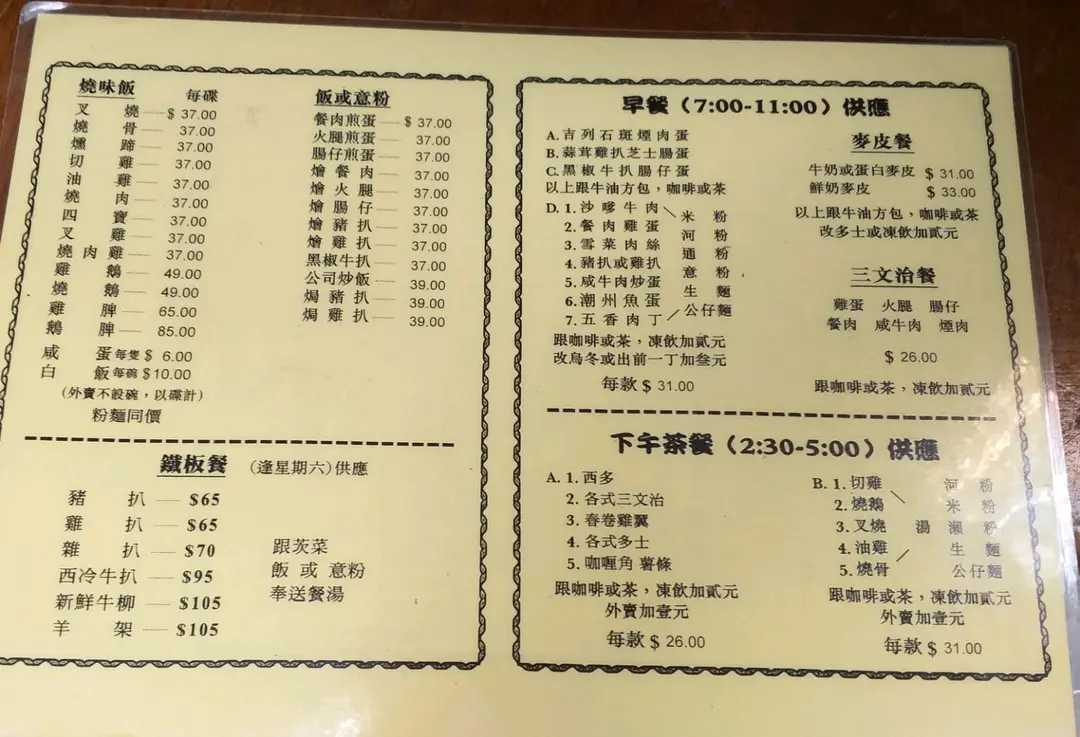 燒味飯 每碟
叉燒 $ 37.00
燒骨 37.00
燻蹄 37.00
切雞 37.00
油雞 37.00
燒肉 37.00
四寶 37.00
叉雞 37.00
燒肉雞 37.00
雞鵝 49.00
燒鵝 49.00
雞脾 65.00
鵝脾 85.00
咸蛋每隻 $ 6.00
白飯每碗 $10.00
(外賣不設碗,以碟計)
粉麵同價
飯或意粉
餐肉煎蛋 $ 37.00
火腿煎蛋 37.00
腸仔煎蛋 37.00
燴餐肉 37.00
燴火腿 37.00
燴腸仔 37.00
燴豬扒 37.00
燴雞扒 37.00
黑椒牛扒 37.00
公司炒飯 39.00
焗豬扒 39.00
焗雞扒 39.00
鐵板餐 (逢星期六)供應
豬扒 $65
雞扒 $65
雜扒 $70
西冷牛扒 $95
新鮮牛柳 $105
羊架 $105
跟茨菜
飯或意粉
奉送餐湯
早餐(7:00-11:00)供應
A.吉列石斑煙肉蛋
B.蒜茸雞扒芝士腸蛋
C.黑椒牛扒腸仔蛋
以上跟牛油方包,咖啡或茶
D. 1.沙嗲牛肉
2.餐肉雞蛋
3.雪菜肉絲
4.豬扒或雞扒
5.咸牛肉炒蛋
6.潮州魚蛋
7.五香肉丁
米粉
河粉
通粉
意粉
生麵
公仔麵
跟咖啡或茶,凍飲加貳元
改烏冬或出前一丁加叁元
每款 $ 31.00
麥皮餐
牛奶或蛋白麥皮 $ 31.00
鮮奶麥皮 $ 33.00
以上跟牛油方包,咖啡或茶
改多士或凍飲加貳元
三文治餐
雞蛋 火腿 腸仔
餐肉 咸牛肉 煙肉
$ 26.00
跟咖啡或茶,凍飲加貳元
下午茶餐(2:30-5:00)供應
A. 1.西多
2.各式三文治
3.春卷雞翼
4.各式多士
5.咖喱角 薯條
跟咖啡或茶,凍飲加貳元
外賣加壹元
每款 $ 26.00
B. 1.切雞
2.燒鵝
3.叉燒
4.油雞
5.燒骨
湯
河粉
米粉
瀨粉
生麵
公仔麵
跟咖啡或茶,凍飲加貳元
外賣加壹元
每款 $ 31.00